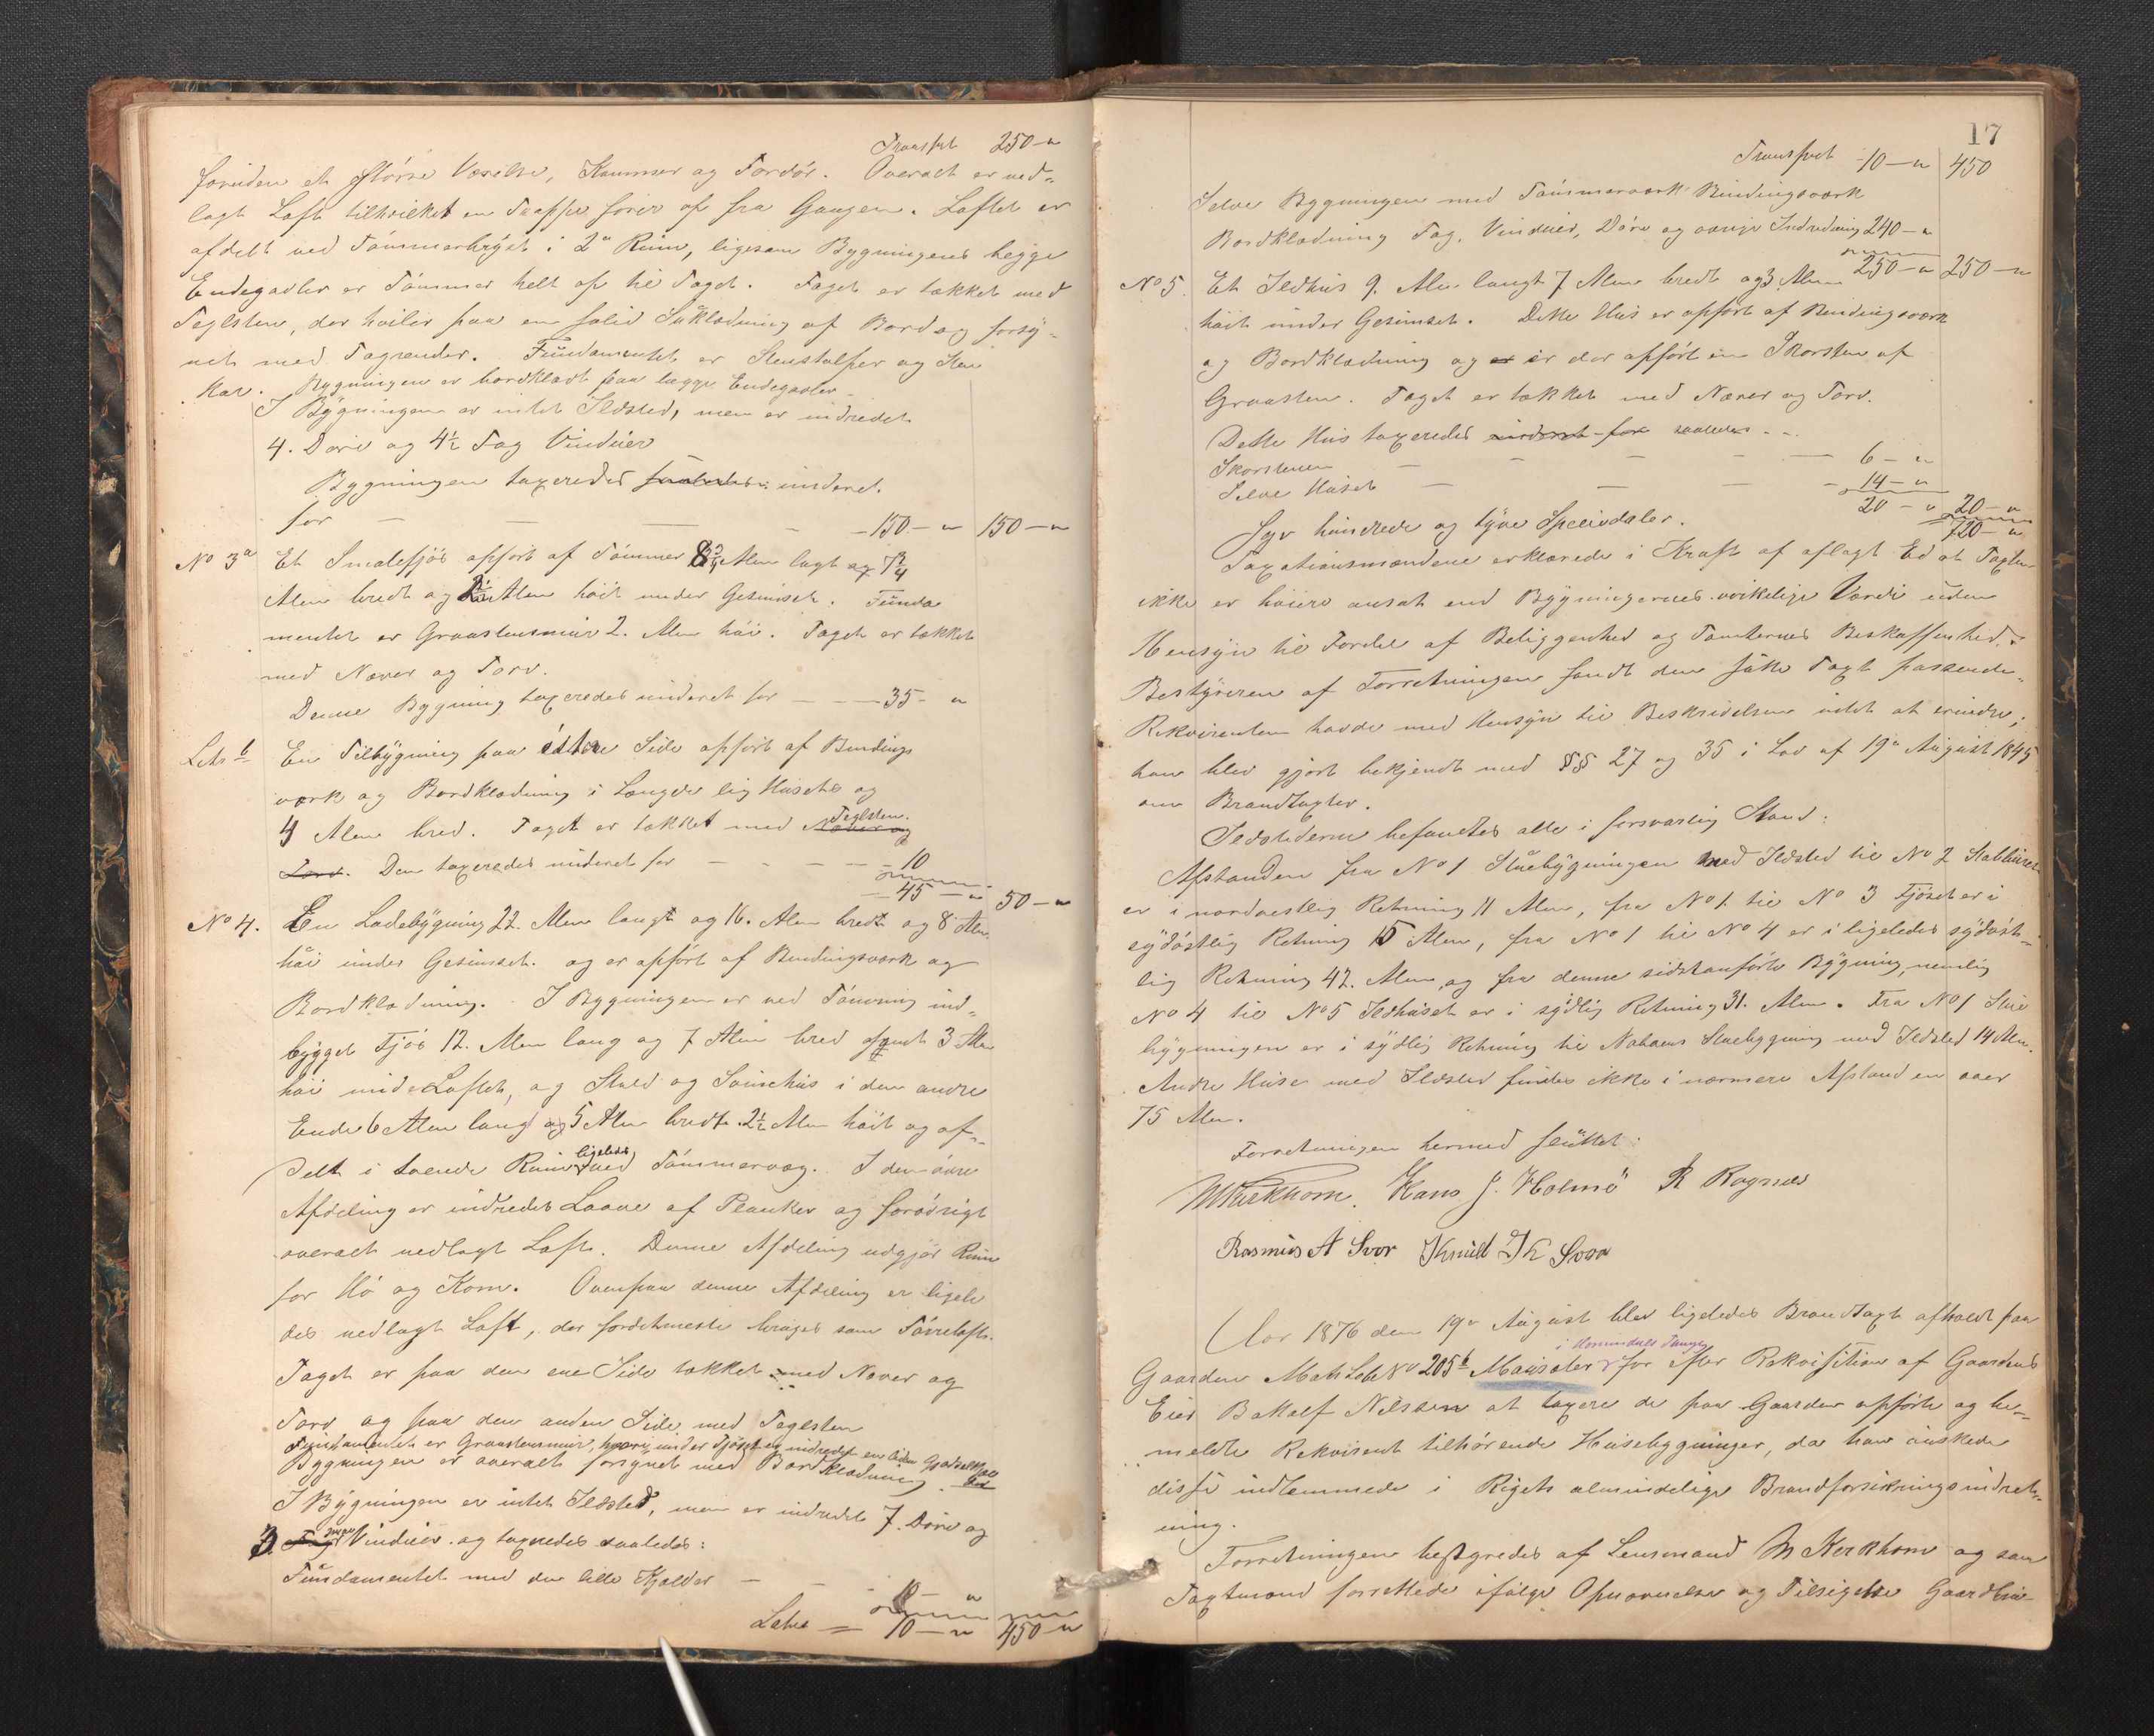 Transport 250 — "
foruden et större Værelse, Kammer og Fordör. Overalt er ned-
lagt Loft tilhvilket en Trappe förer op fra Gangen. Loftet er
afdelt ved Tömmerbryst i 2de Rum, ligesom Bygningens begge
Endegavler er Tömmer helt op til Taget. Taget er tækket med
Teglsten, der hviler paa en solid Suklædning af Bord og forsy-
net med Tagrender. Fundamentet er Stenstolper og Sten
Kar. Bygningen er bordklædt paa begge Endegavler
I Bygningen er intet Ildsted, men er indredet
4. Döre og 4½ Fag Vinduer
Bygningen taxeredes saaledes: underet.
for — — — — 150 — " 150 — "
No 3a Et Smalefjös opfört af Tömmer 8¾ Alen lagt og 7¾
Alen bredt og 2½ Alen höit under Gesimset. Funda
mentet er Graastensmur 2. Alen höi. Taget er tækket
med Næver og Torv.
Denne Bygning taxeredes underet for — — 35 — "
Litr b En Tilbygning paa östre Side opfört af Bindings
værk og Bordklædning i Længde lig Husets og
4 Alen bred. Taget er tækket med Næver og Teglsten.
Torv. Den taxeredes underet for — — — 10
— 45 — " 50 — "
No 4. En Ladebygning 22. Alen langt og 16. Alen bredt og 8 Alen
höi under Gesimset. og er opfört af Bindingsværk og
Bordklædning. I Bygningen er ved Tömring ind-
bygget Fjös 12. Alen lang og 7 Alen bred samt 3 Alen
höi under Loftet, og Stald og Svinehus i den andre
Ende 6 Alen lang og 5 Alen bredt 2½ Alen höit og af-
delt i tvende Rum ligeledes ved Tömmervæg. I den övre
Afdeling er indredet Laave af Planker og forövrigt
overalt nedlagt Loft. Denne Afdeling udgjör Rum
for Hö og Korn. Ovenpaa denne Afdeling er ligele
des nedlagt Loft, der fordetmeste bruges som Törreloft.
Taget er paa den ene Side tækket med Næver og
Torv og paa den anden Side med Teglsten
Fundamentet er Graastensmur, hvori under Fjöset er indredet en liden
Bygningen er overalt forsynet med Bordklædning.
I Bygningen er intet Ildsted, men er indredet 7. Döre og
3. Fag smaa Vinduer. og taxeredes saaledes:
Fundamentet med den lille Kjelder — — — 10 — "
Latus = 10 — " 450 — "
17
Transport 10 — " 450
Selve Bygningen med Tömmerværk Bindingsværk
Bordklædning Tag, Vinduer, Döre og övrige Indredning 240 — "
250 — " 250 — "
No 5. Et Ildhus 9. Alen langt 7 Alen bredt og 3 Alen
höit under Gesimset. Dette Hus er opfört af Bindingsværk
og Bordklædning og er er der opfört en Skorsten af
Graasten. Taget er tækket med Næver og Torv.
Dette Hus taxeredes underet for saaledes - -
Skorstenen — — — — 6 — "
Selve Huset — — — 14 — "
20 — " 20 — "
Syv hundrede og tyve Speciedaler. 720 — "
Taxationsmændene erklærede i Kraft af aflagt Ed at Taxten
ikke er höiere ansat end Bygningernes virkelige Værdi uden
Hensyn til Fordel af Beliggenhed og Tomternes Beskaffenhed.
Bestyreren af Forretningen fandt den satte Taxt passende.
Rekvirenten havde med Hensyn til Beskrivelsen intet at erindre;
han blev gjort bekjendt med §§ 27 og 35 i Lov af 19de August 1845
om Brandtaxter.
Ildstederne befandtes alle i forsvarlig Stand:
Afstanden fra No 1 Stuebygningen med Ildsted til No 2 Stabburet
er i nordvestlig Retning 11 Alen, fra No 1 til No 3 Fjöset er i
sydöstlig Retning 15 Alen, fra No 1 til No 4 er i ligeledes sydöst-
lig Retning 42. Alen og fra denne sidstanförte Bygning, nemlig
No 4 til No 5 Ildhuset er i sydlig Retning 31. Alen. Fra No 1 Stue
bygningen er i sydlig Retning til Naboens Stuebygning med Ildsted 14 Alen.
Andre Huse med Ildsted findes ikke i nærmere Afstand en over
75 Alen.
Forretningen hermed sluttet:
M Kirkhorn. Hans J. Holmö R Ragnæs
Rasmus A Svor Knud K
Aar 1876 den 19de August blev ligeledes Brandtaxt afholdt paa
Gaarden Matr Lobe No 205b Mauseter for efter Rekvisition af Gaardens
Eier Botolf Nilssen at taxere de paa Gaarden opförte og be-
meldte Rekvirent tilhörende Husebygninger, da han önskede
disse indlemmede i Rigets almindelige Brandforsikringsindret-
ning.
Forretningen bestyredes af Lensmand M Kirkhorn og som
Taxtmænd forrettede ifölge Opnævnelse og Tilsigelse Gaardbru-